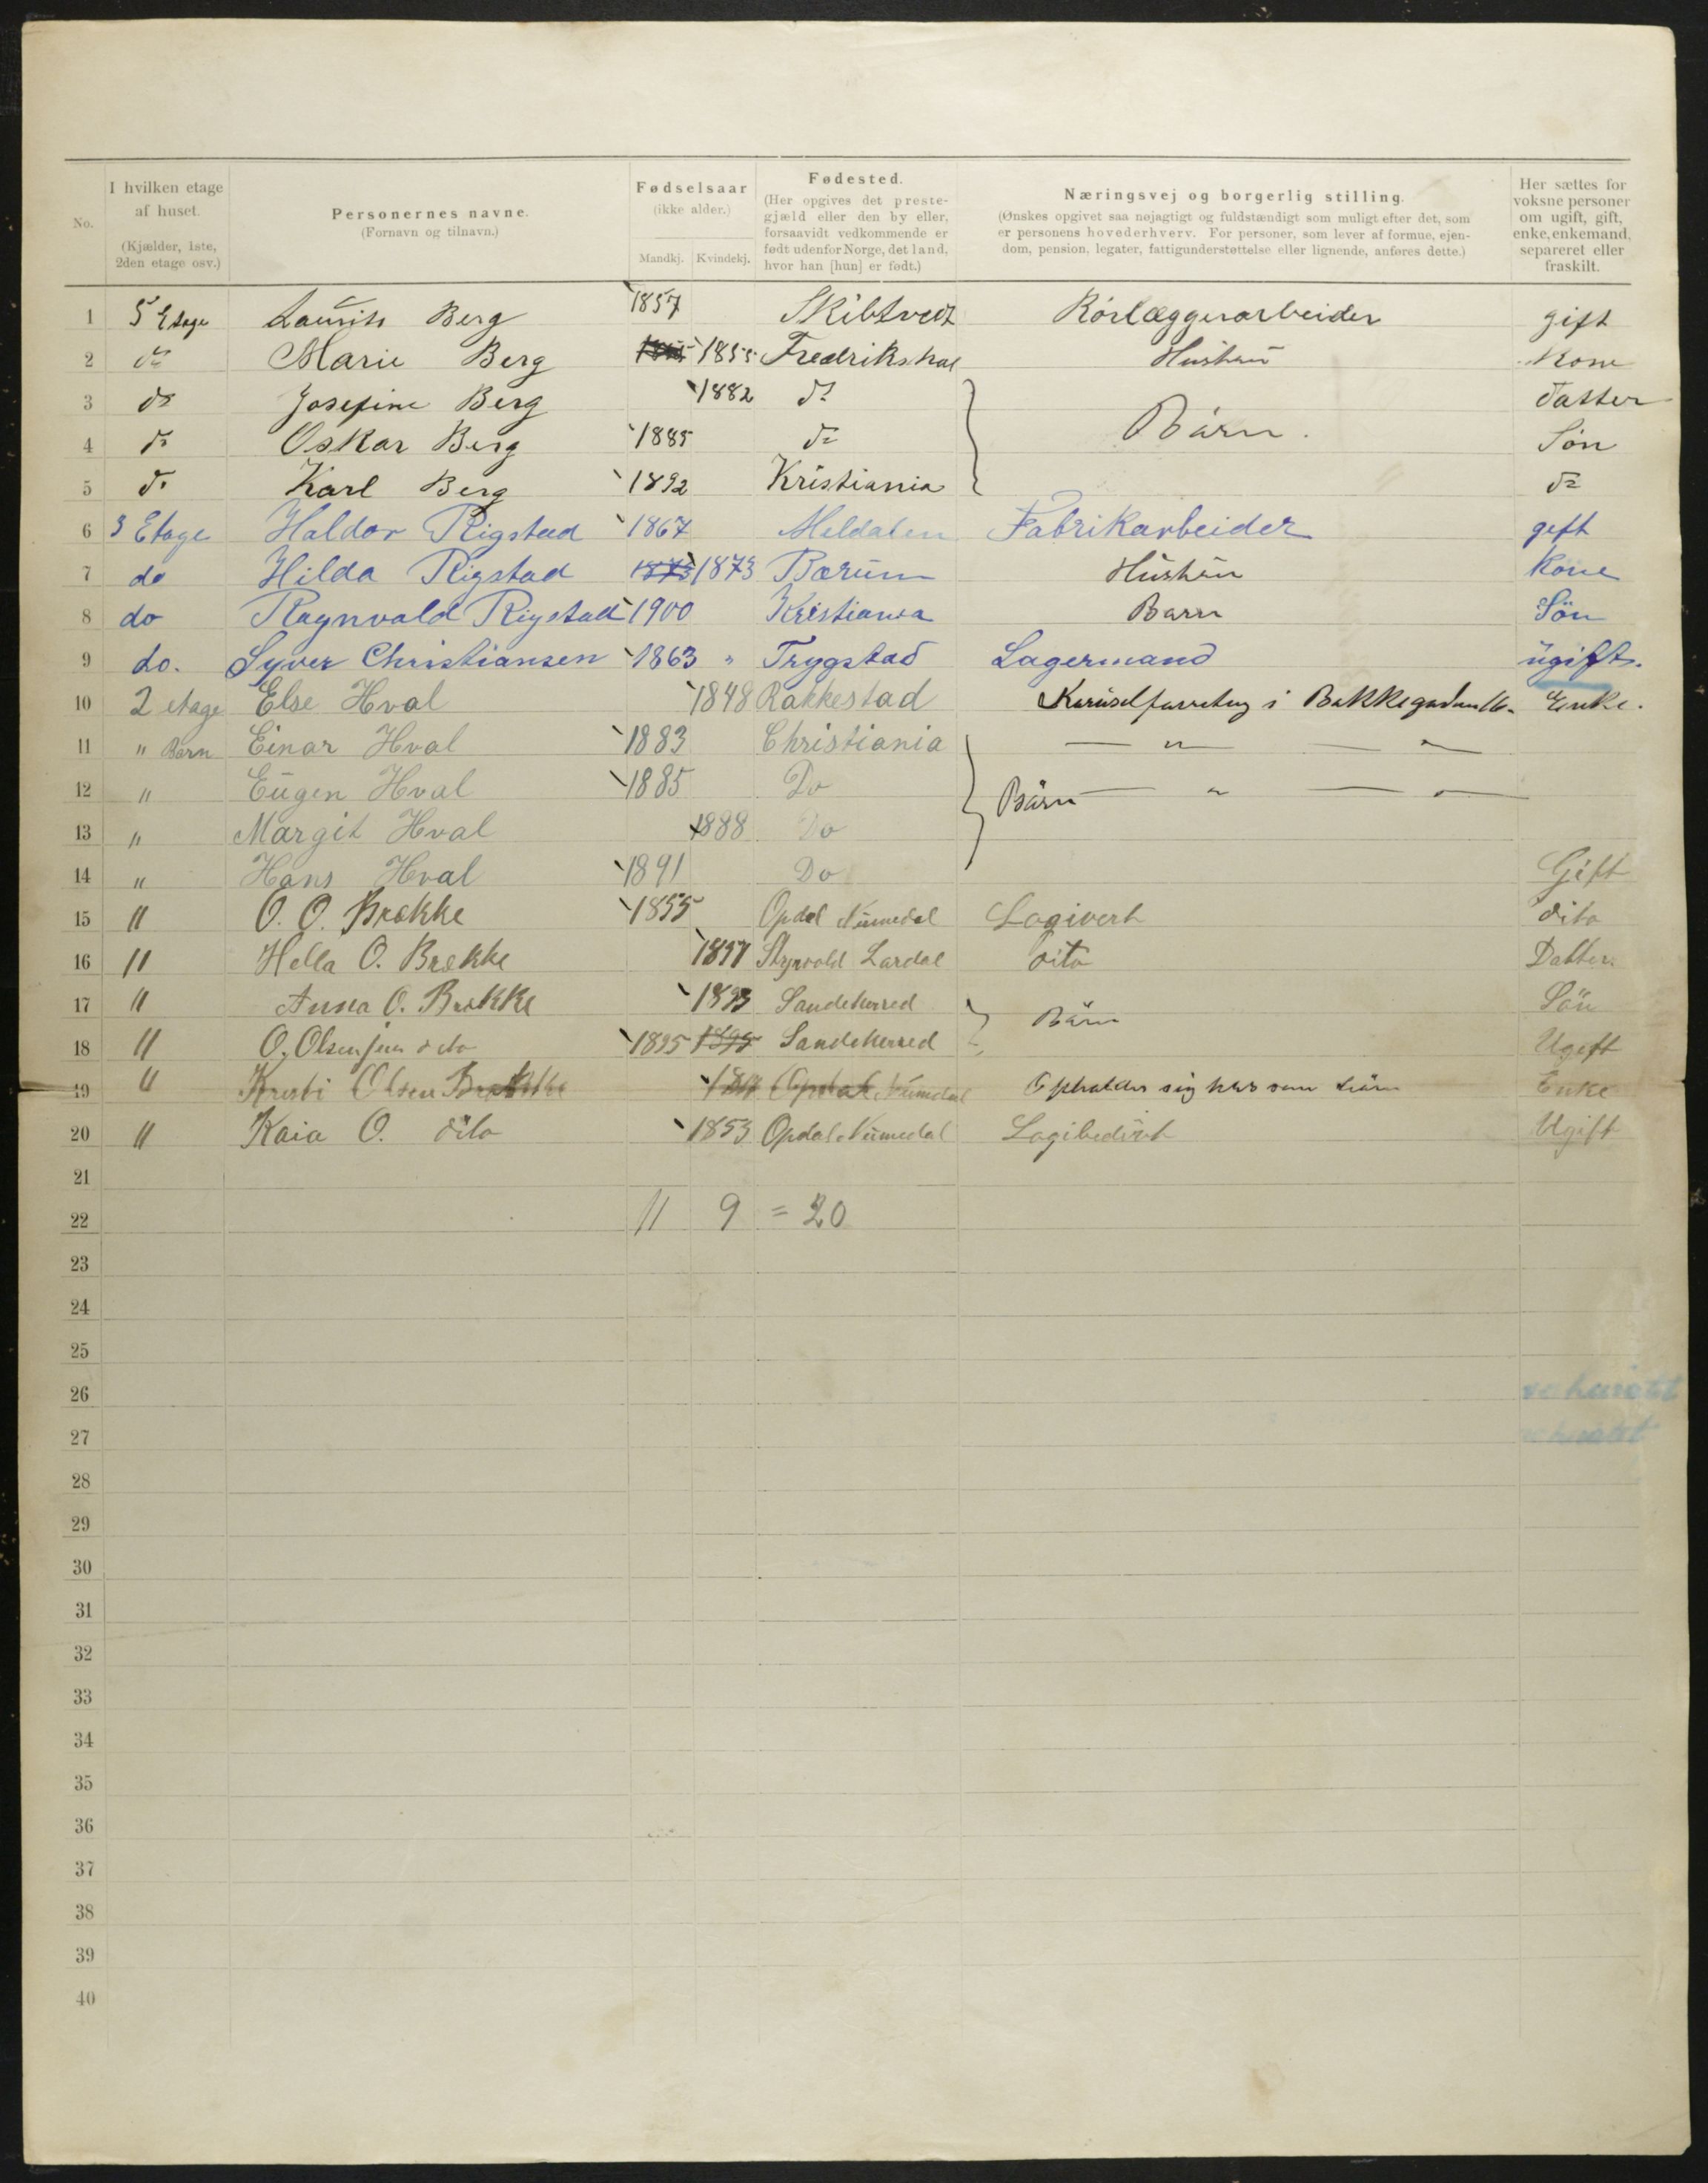 No.
I hvilken etage af huset.
(Kjælder, 1ste, 2den etage osv.)
Personernes navne.
(Fornavn og tilnavn.)
Fødselsaar
(ikke alder.)
Mandkj. Kvindekj.
Fødested.
(Her opgives det prestegjæld eller den by eller, forsaavidt vedkommende er født udenfor Norge, det land, hvor han [hun] er født.)
Næringsvej og borgerlig stilling.
(Ønskes opgivet saa nøjagtigt og fuldstændigt som muligt efter det, som er personens hovederhverv. For personer, som lever af formue, ejendom, pension, legater, fattigunderstøttelse eller lignende, anføres dette.)
Her sættes for voksne personer om ugift, gift, enke, enkemand, separeret eller fraskilt.
1 5 Etage Laurits Berg 1857 Skibtvedt Rörlæggerarbeider gift
2 do Marie Berg 1855 Fredrikshal Hustru Kone
3 do Josefine Berg 1882 do Datter
4 do Oskar Berg 1885 do Børn. Søn
5 do Karl Berg 1892 Kristiania do
6 3 Etage Haldor Rigstad 1867 Meldalen Fabrikarbeider gift
7 do Hilda Rigstad 1873 1873 Bærum Hustru Kone
8 do Ragnvald Rigstad 1900 Kristiania Barn Sön
9 do. Syver Christiansen 1863 " Trygstad Lagermand ugift.
10 2 etage Else Hval 1848 Rakkestad i Bakkegaden Enke.
11 " Børn Einar Hval 1883 Christiania — " — — " —
12 " Eugen Hval 1885 Do Børn — " — — " —
13 " Margit Hval 1888 Do
14 " Hans Hval 1891 Do Gift
15 " O. O. Brekke 1855 Opdal Numedal Logivert dito
16 " Hella O. Brekke Lardal dito Datter.
17 " Anna O. Brekke 1893 Sandeherred Børn Sön
18 " O. Olsen jun dito 1895 1895 Sandeherred Ugift
19 " Olsen Opdal Numedal Opholder sig her som Enke
20 " Kaia O. dito 1853 Opdal Numedal Ugift
21
22 11 9 = 20
23
24
25
26
27
28
29
30
31
32
33
34
35
36
37
38
39
40